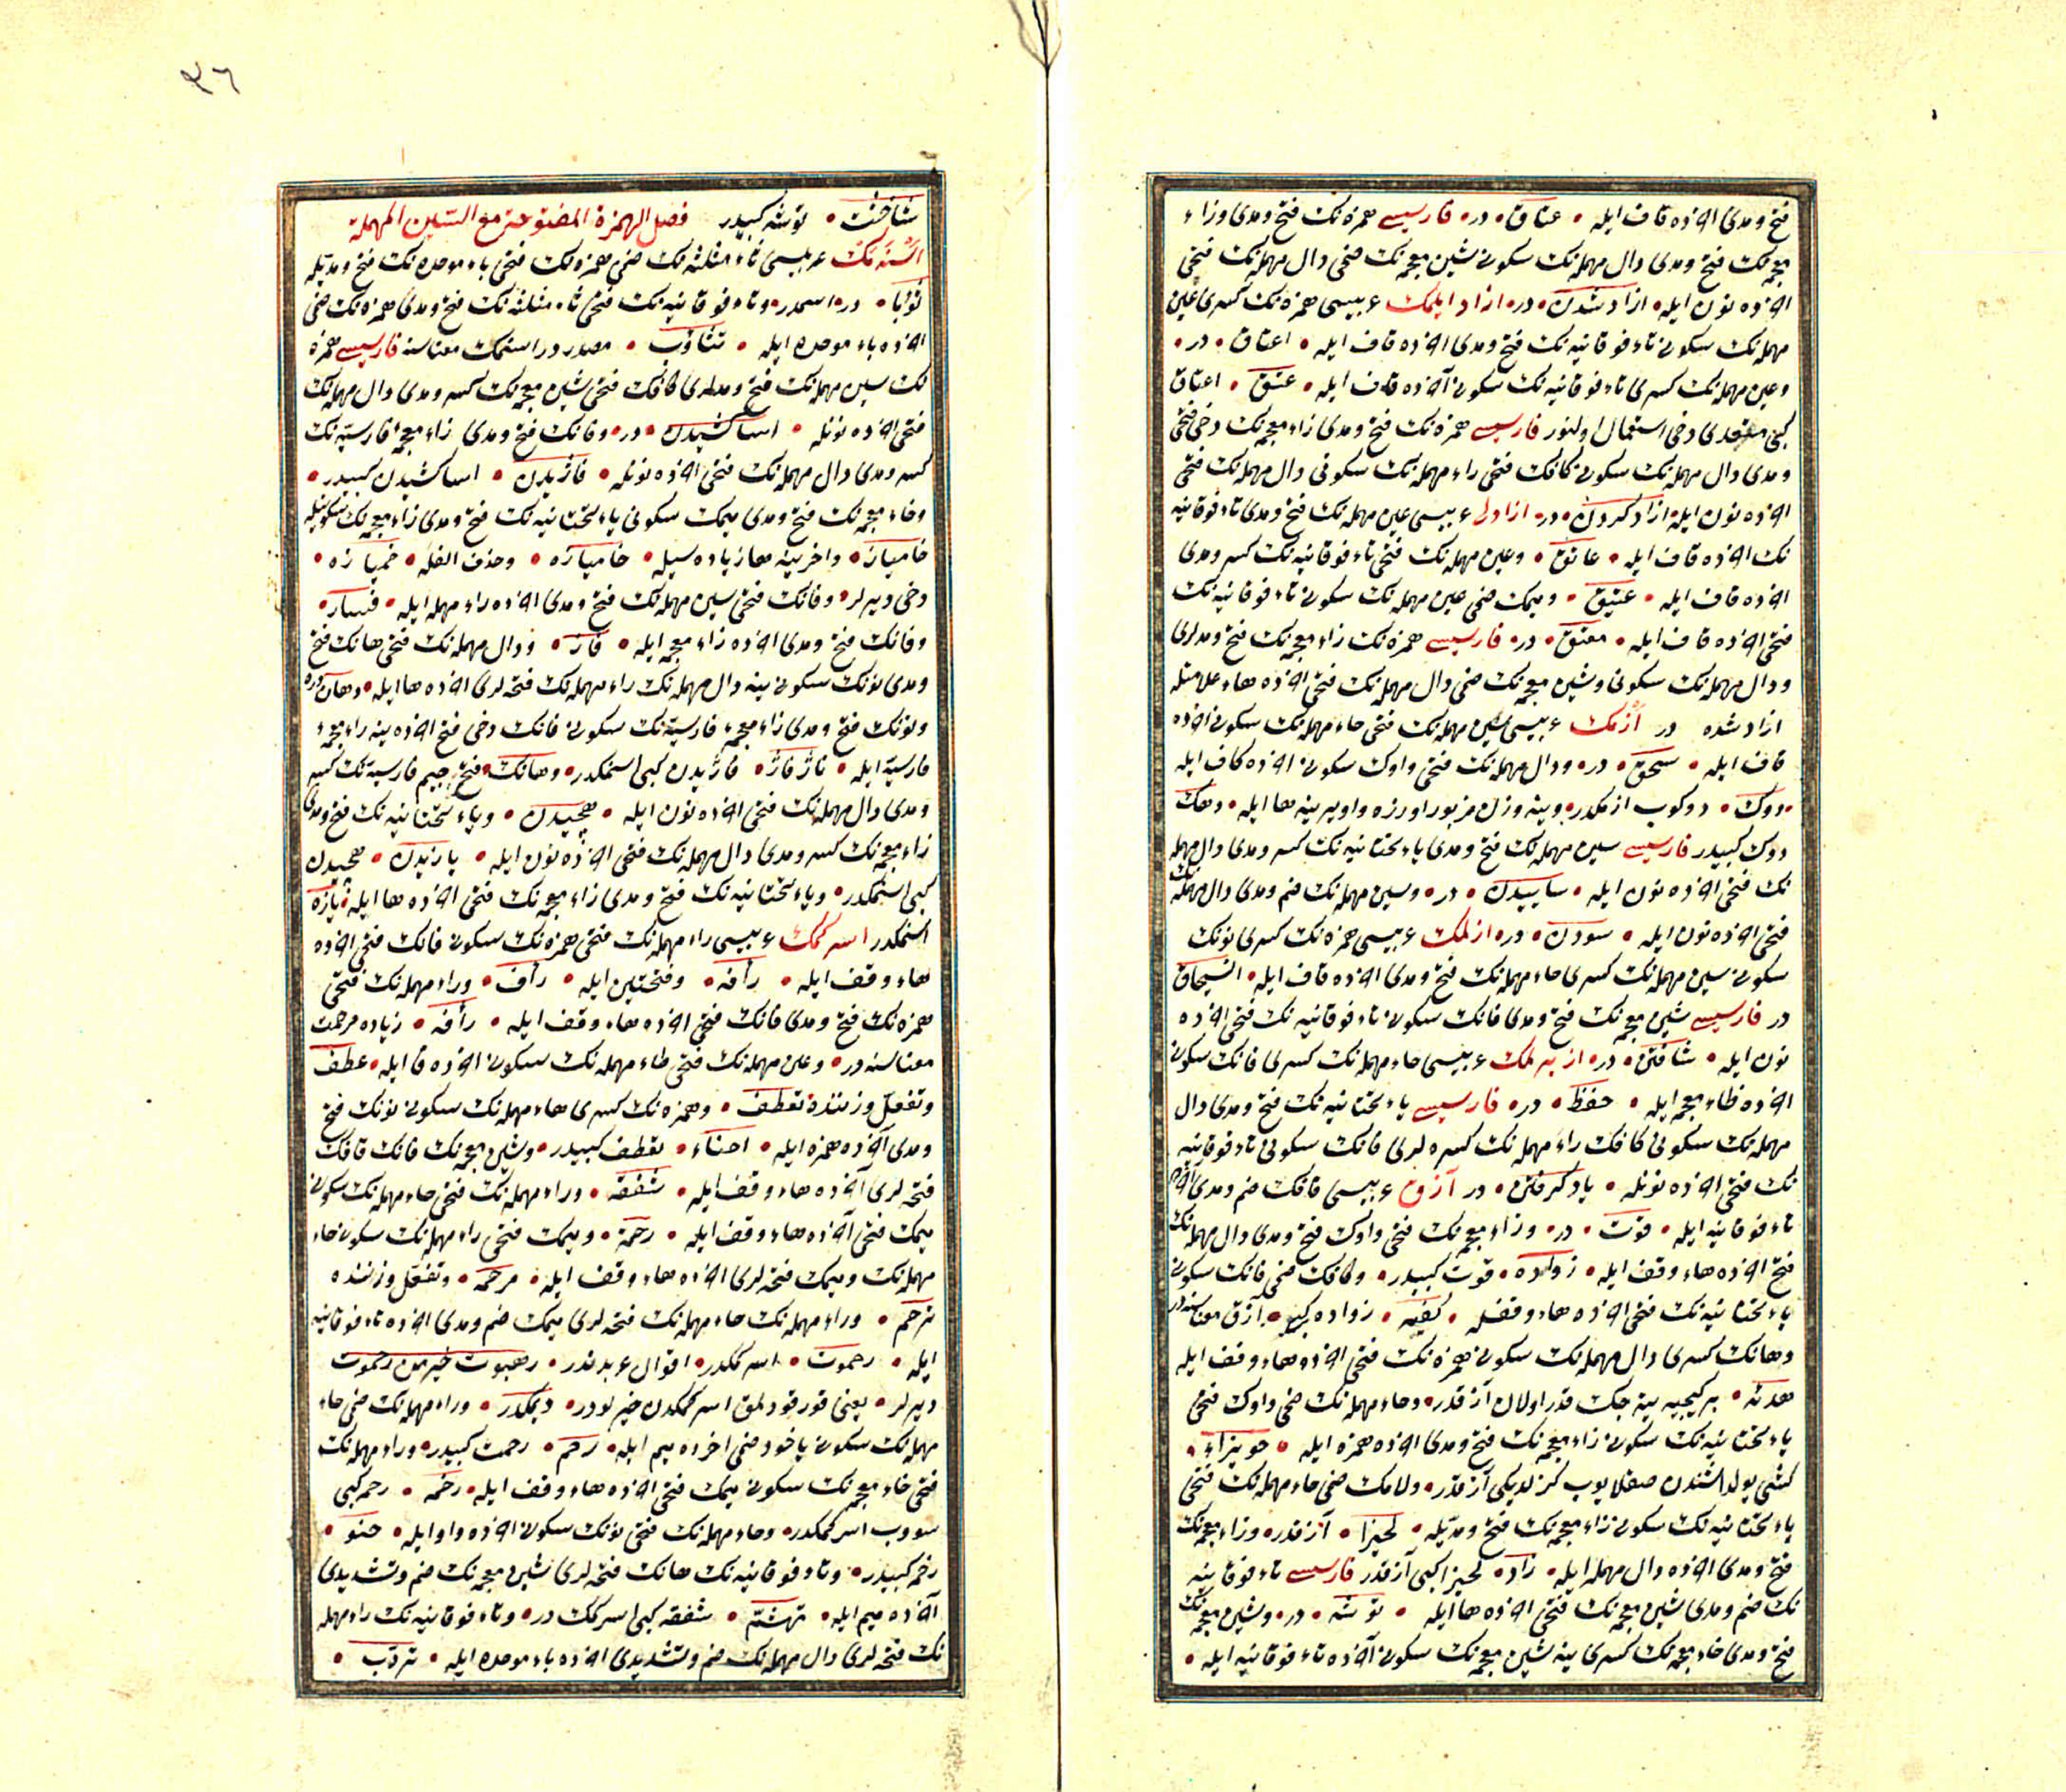 فتح و مدی اخرده قاف ایله • عتاق • در • فارسیسی همزه نک فتح و مدی و زاء
معجمه نک فتح و مدی دال مهمله نک سکونی شین معجمه نک ضمی دال مهمله نک فتحی
اخرده نون ایله • ازاد شدن • در • ازاد ایلمک عربیسی همزه نک کسری عین
مهمله نک سکونی تاء فوقانیه نک فتح و مدی اخرده قاف ایله • اعتاق • در •
و عین مهمله نک کسری تاء فوقانیه نک سکونی آخرده قاف ایله • عتق • اعتاق
کبی متعدی دخی استعمال اولنور فارسیسی همزه نک فتح و مدی زاء معجمه نک دخی فتحی
و مدی دال مهمله نک سکونی کافک فتحی راء مهمله نک سکونی دال مهمله نک فتحی
اخرده نون ایله ازاد کردن • در • ازادلی عربیسی عین مهمله نک فتح و مدی تاء فوقانیه
نک اخرده قاف ایله • عاتق • و عین مهمله نک فتحی تاء فوقانیه نک کسر و مدی
اخرده قاف ایله • عتیق • و میمک ضمی عین مهمله نک سکونی تاء فوقانیه نک
فتحی اخرده قاف ایله • معتق • در • فارسیسی همزه نک زاء معجمه نک فتح و مدلری
و دال مهمله نک سکونی و شین معجمه نک ضمی دال مهمله نک فتحی اخرده هاء علامتله
ازاد شده در ازمک عربیسی سین مهمله نک فتحی حاء مهمله نک سکونی اخرده
قاف ایله • سحق • در • و دال مهمله نک فتحی واوک سکونی اخرده کاف ایله
• دوک • دوکوب ازمکدر • وینه وزن مزبور اوزره واو یرینه ها ایله • دهک
دوک کبیدر فارسیسی سین مهمله نک فتح و مدی یاء تحتانیه نک کسر و مدی دال مهمله
نک فتحی اخرده نون ایله • ساییدن • در • و سین مهمله نک ضم و مدی دال مهمله نک
فتحی اخرده نون ایله • سودن • در • ازلمک عربیسی همزه نک کسری نونک
سکونی سین مهمله نک کسری حاء مهمله نک فتح و مدی اخرده قاف ایله • انسحاق
در فارسیسی شین معجمه نک فتح و مدی فانک سکونی تاء فوقانیه نک فتحی اخرده
نون ایله • شافتن • در • ازبرلمک عربیسی حاء مهمله نک کسری فانک سکونی
اخرده ظاء معجمه ایله • حفظ • در • فارسیسی یاء تحتانیه نک فتح و مدی دال
مهمله نک سکونی کافک راء مهمله نک کسره لری فانک سکونی تاء فوقانیه
نک فتحی اخرده نونله • یاد کرفتن • در آزوق عربیسی قافک ضم و مدی آخرده
تاء فوقانیه ایله • قوت • در • و زاء معجمه نک فتحی واوک فتح و مدی دال مهمله نک
فتح اخرده هاء وقف ایله • زواده • قوت کبیدر • و کافک ضمی فانک سکونی
یاء تحتانیه نک فتحی اخرده هاء وقفله • کفیه • زواده کبی • ازق معناسنه در
و هانک کسری دال مهمله نک سکونی همزه نک فتحی اخرده هاء وقف ایله
هدئه • بر کیجه یه یتیشه جک قدر اولان ازقدر • و حاء مهمله نک ضمی واوک فتحی
یاء تحتانیه نک سکونی زاء معجمه نک فتح و مدی اخرده همزه ایله • حویزاء •
کشی یولداشندن صقلایوب کزلدیکی ازقدر • و لامک ضمی حاء مهمله نک فتحی
یاء تحتانیه نک سکونی زاء معجمه نک فتح و مدیله • لحیزا • ازقدر • و زاء معجمه نک
فتح و مدی اخرده دال مهمله ایله • زاد • لحیزا کبی ازقدر فارسیسی تاء فوقانیه
نک ضم و مدی شین معجمه نک فتحی اخرده ها ایله • توشه • در • و شین معجمه نک
فتح و مدی خاء معجمه نک کسری ینه شین معجمه نک سکونی آخرده تاء فوقانیه ایله •
٩٦
شاخشت • توشه کبیدر فصل الهمزة المفتوحة مع السین المهملة
اسنمک عربیسی ثاء مثلثه نک ضمی همزه نک فتحی باء موحده نک فتح و مدیله
ثؤبا • در • اسمدر • و تاء فوقانیه نک فتحی ثاء مثلثه نک فتح و مدی همزه نک ضمی
اخرده باء موحده ایله • تثاؤب • مصدردر اسنمک معناسنه فارسیسی همزه
نک سین مهمله نک فتح و مدلری کافک فتحی شین معجمه نک کسر و مدی دال مهمله نک
فتحی اخرده نونله • اساکشیدن • در • و فانک فتح و مدی زاء معجمه فارسیه نک
کسر و مدی دال مهمله نک فتحی اخرده نونله • فاژیدن • اساکشیدن کبیدر •
و خاء معجمه نک فتح و مدی میمک سکونی یاء تحتانیه نک فتح و مدی زاء معجمه نک سکونیله
خامیاز • و اخرینه ها زیاده سیله • خامیازه • و حذف الفله • خمیازه •
دخی دیرلر • و فانک فتحی سین مهمله نک فتح و مدی اخرده راء مهمله ایله • فسار •
و فانک فتح و مدی اخرده زاء معجمه ایله • فاز • و دال مهمله نک فتحی هانک فتح
و مدی نونک سکونی ینه دال مهمله نک راء مهمله نک فتحه لری اخرده ها ایله • دهان دره
و نونک فتح و مدی زاء معجمه فارسیه نک سکونی فانک دخی فتح اخرده ینه زاء معجمه
فارسیه ایله • ناژ فاژ • فاژیدن کبی اسنمکدر • و هانک فتح جیم فارسیه نک کسر
و مدی دال مهمله نک فتحی اخرده نون ایله • هچیدن • و یاء تحتانیه نک فتح و مدی
زاء معجمه نک کسر و مدی دال مهمله نک فتحی اخرده نون ایله • یازیدن • هچیدن
کبی اسنمکدر • و یاء تحتانیه نک فتح و مدی زاء معجمه نک فتحی اخرده ها ایله • یازه
اسنمکدر اسرکمک عربیسی راء مهمله نک فتحی همزه نک سکونی فانک فتحی اخرده
هاء وقف ایله • رأفه • و فتحتین ایله • رأف • و راء مهمله نک فتحی
همزه نک فتح و مدی فانک فتحی اخرده هاء وقف ایله • رآفه • زیاده مرحمت
معناسنه در • و عین مهمله نک فتحی طاء مهمله نک سکونی اخرده فا ایله • عطف
و تفعل وزننده تعطف • و همزه نک کسری حاء مهمله نک سکونی نونک فتح
و مدی آخرده همزه ایله • احناء • تعطف کبیدر • و شین معجمه نک فانک قافک
فتحه لری آخرده هاء وقف ایله • شفقه • و راء مهمله نک فتحی حاء مهمله نک سکونی
میمک فتحی آخرده هاء وقف ایله • رحمة • و میمک فتحی راء مهمله نک سکونی حاء
مهمله نک و میمک فتحه لری اخرده هاء وقف ایله • مرحمه • و تفعل وزننده
ترحم • و راء مهمله نک حاء مهمله نک فتحه لری میمک ضم و مدی اخرده تاء فوقانیه
ایله • رحموت • اسرکمکدر • اقوال عربدندر • رهبوت خیر من رحموت
دیرلر • یعنی قورقودلمق اسرکمکدن خیرلودر • دیمکدر • و راء مهمله نک ضمی حاء
مهمله نک سکونی یاخود ضمی اخرده میم ایله • رحم • رحمت کبیدر • و راء مهمله نک
فتحی خاء معجمه نک سکونی میمک فتحی اخرده هاء وقف ایله • رخمه • رحم کبی
سووب اسرکمکدر • و حاء مهمله نک فتحی نونک سکونی اخرده واو ایله • حنو •
رخم کبیدر • و تاء فوقانیه نک هانک فتحه لری شین معجمه نک ضم و تشدیدی
آخرده میم ایله • تهشم • شفقه کبی اسرکمک در • و تاء فوقانیه نک راء مهمله
نک فتحه لری دال مهمله نک ضم و تشدیدی اخرده باء موحده ایله • تردب •